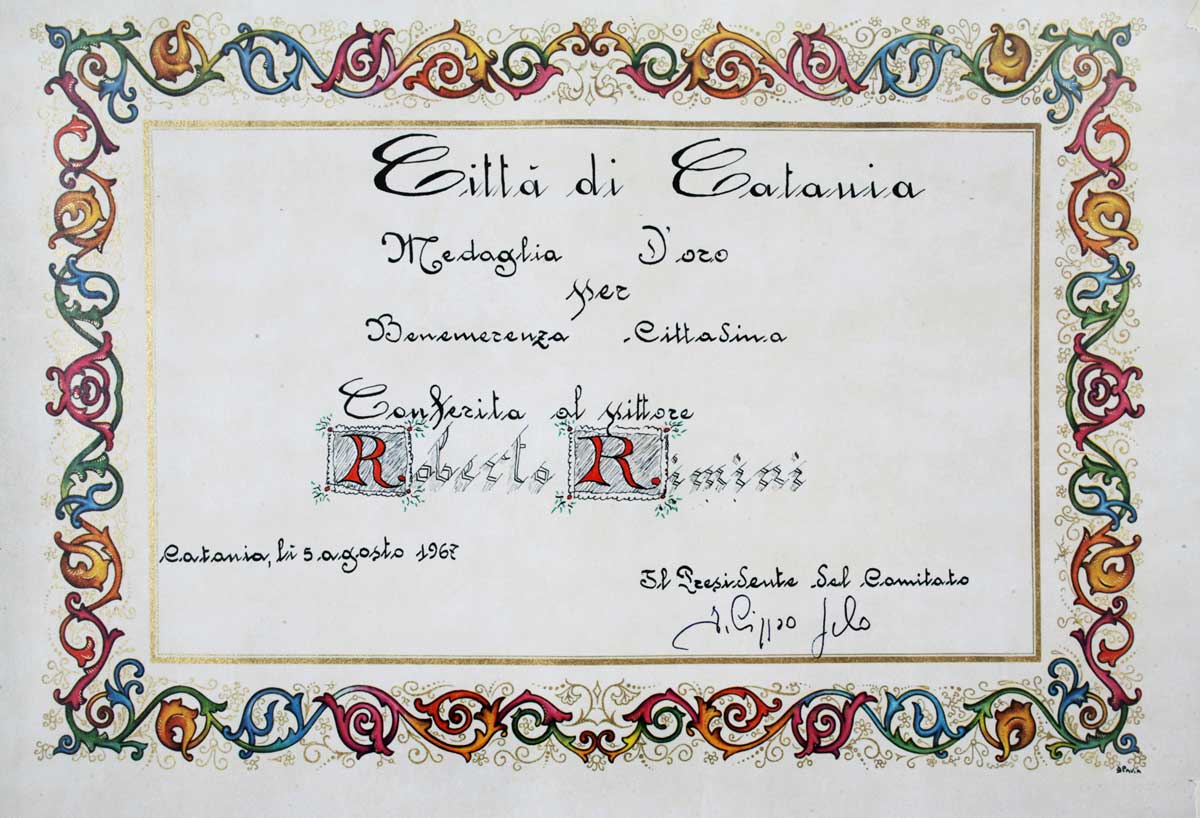 Città di Catania
Medaglia D'oro
per
Benemerenza Cittadina
Conferita al pittore
Roberto Rimini
Catania, lì 5 agosto 1967
Il Presidente del Comitato